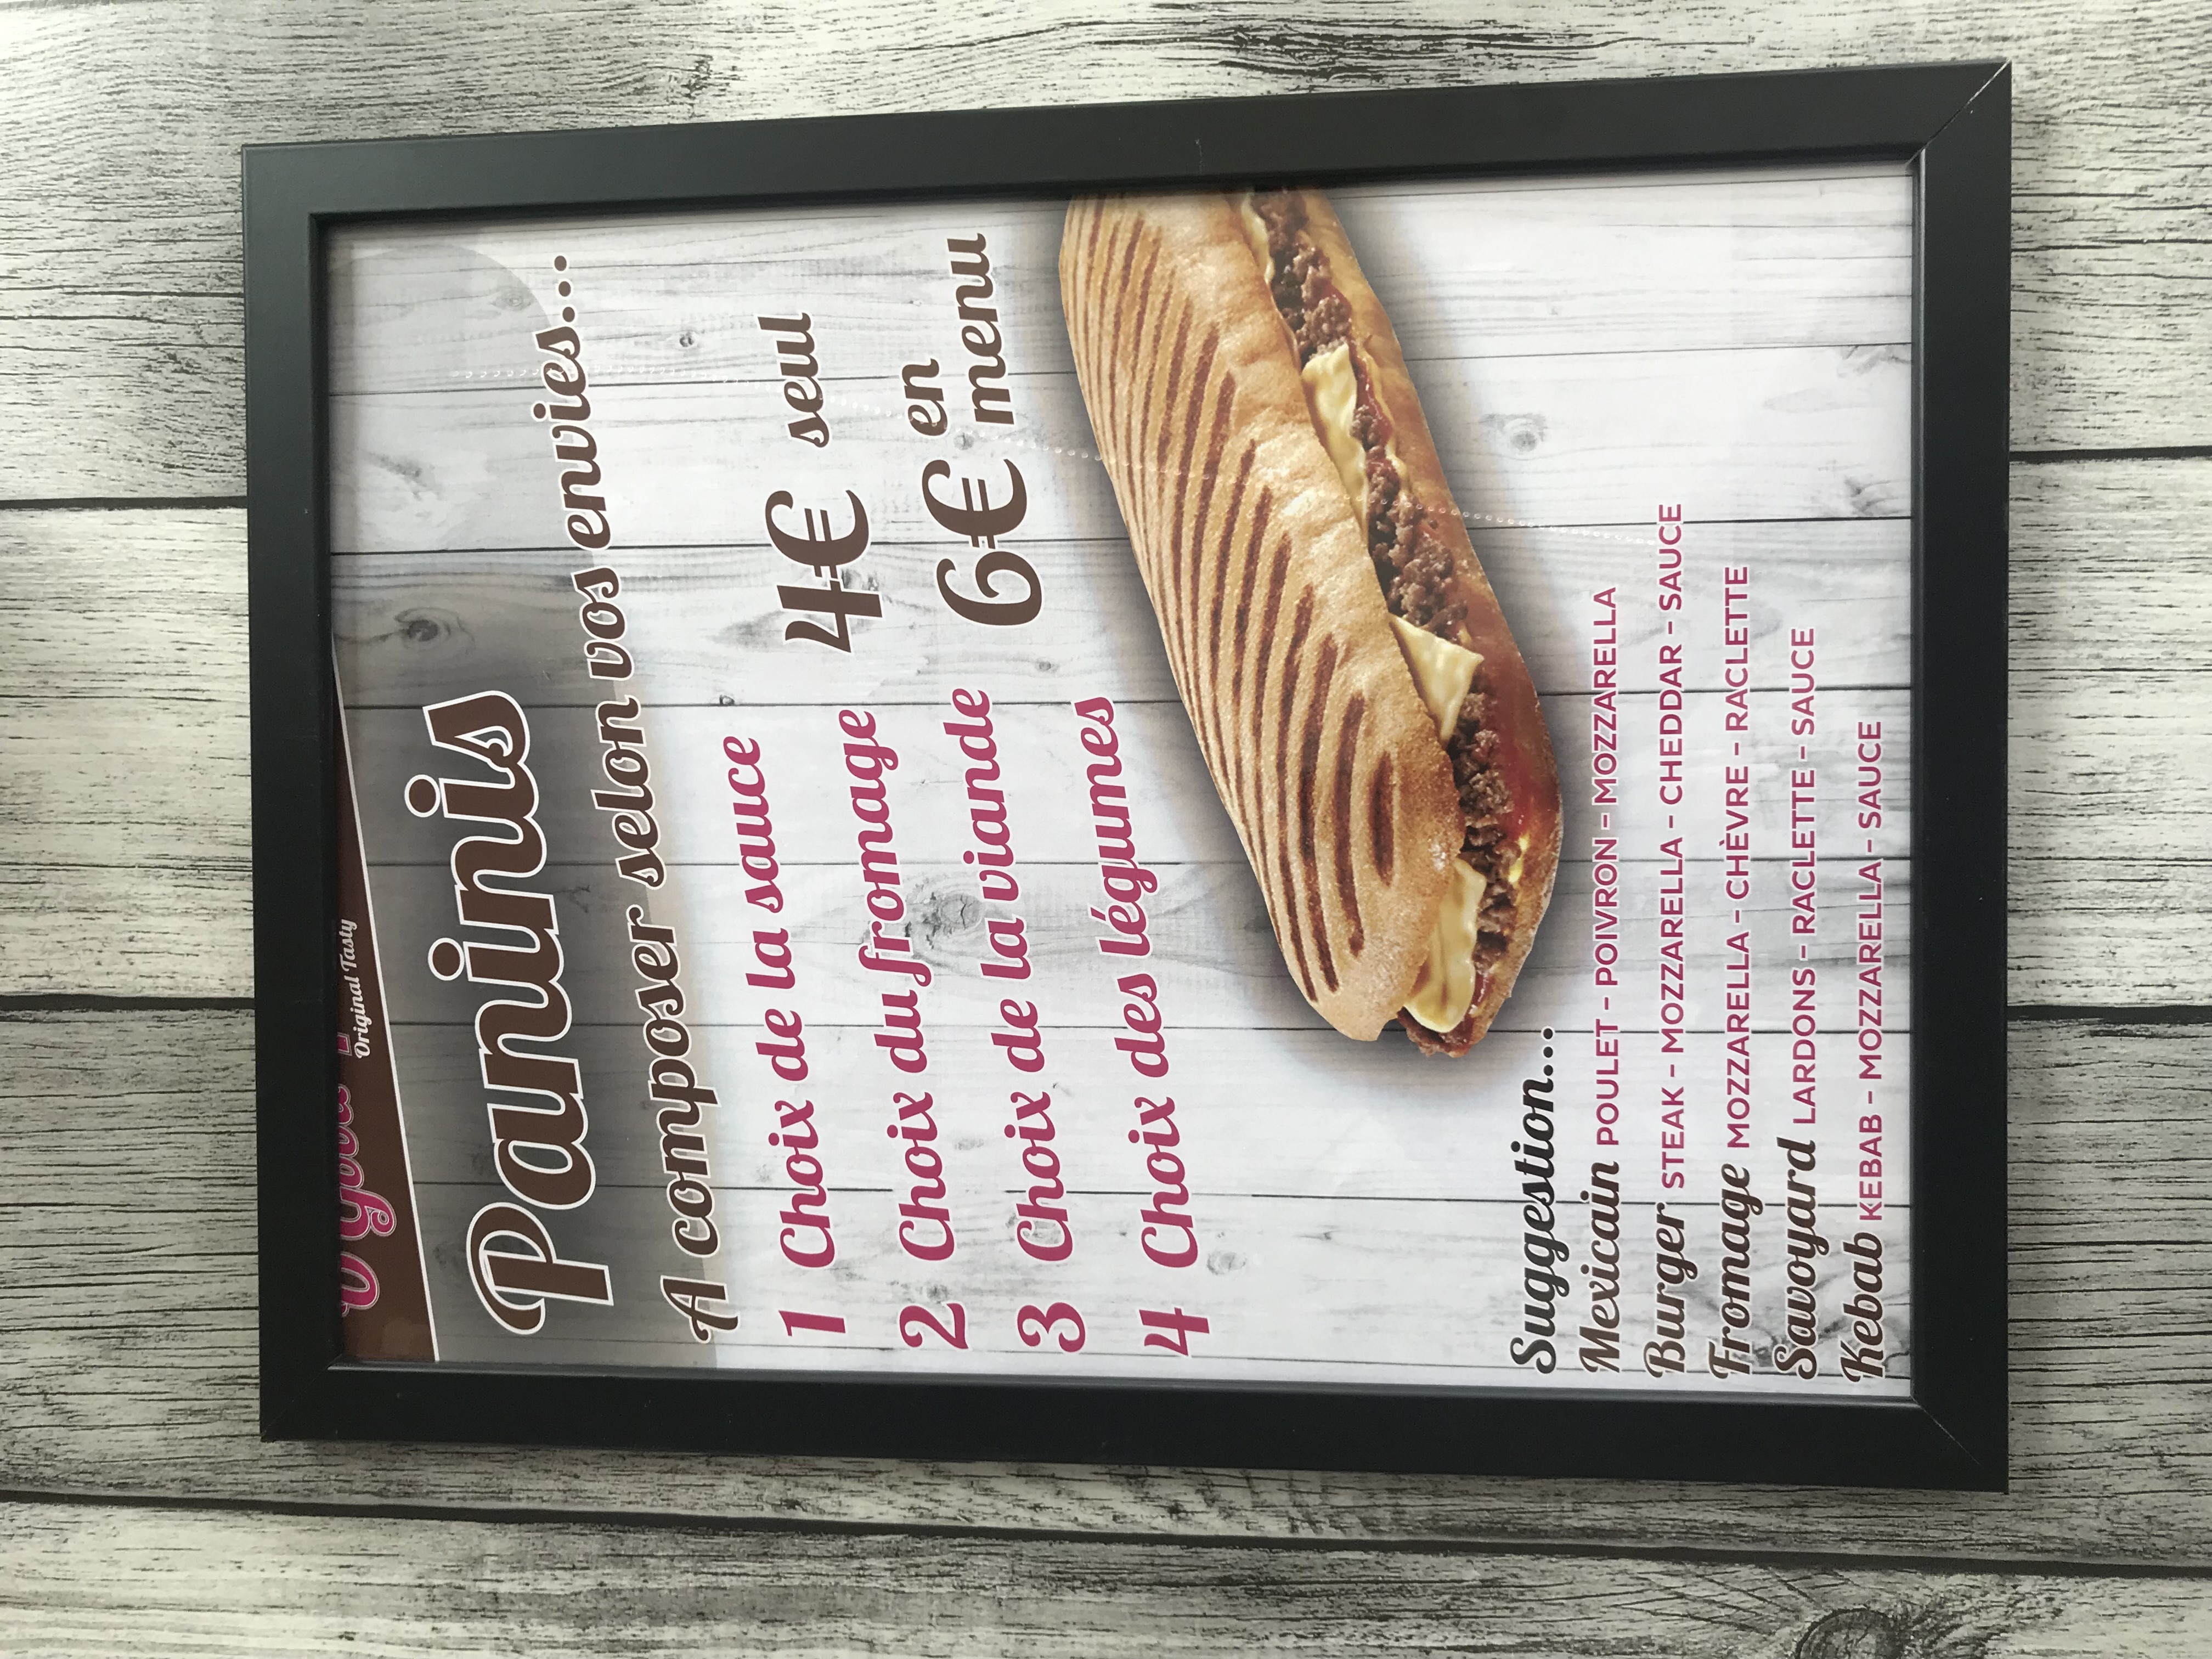 Original Tasty
Paninis
A composer selon vos envies...
1 Choix de la sauce
2 Choix du fromage
3 Choix de la viande
4 Choix des légumes
4€ seul
6€ en
menu
Suggestion...
Mexicain POULET - POIVRON - MOZZARELLA
Burger STEAK - MOZZARELLA - CHEDDAR - SAUCE
Fromage MOZZARELLA - CHÈVRE - RACLETTE
Savoyard LARDONS - RACLETTE - SAUCE
Kebab KEBAB - MOZZARELLA - SAUCE